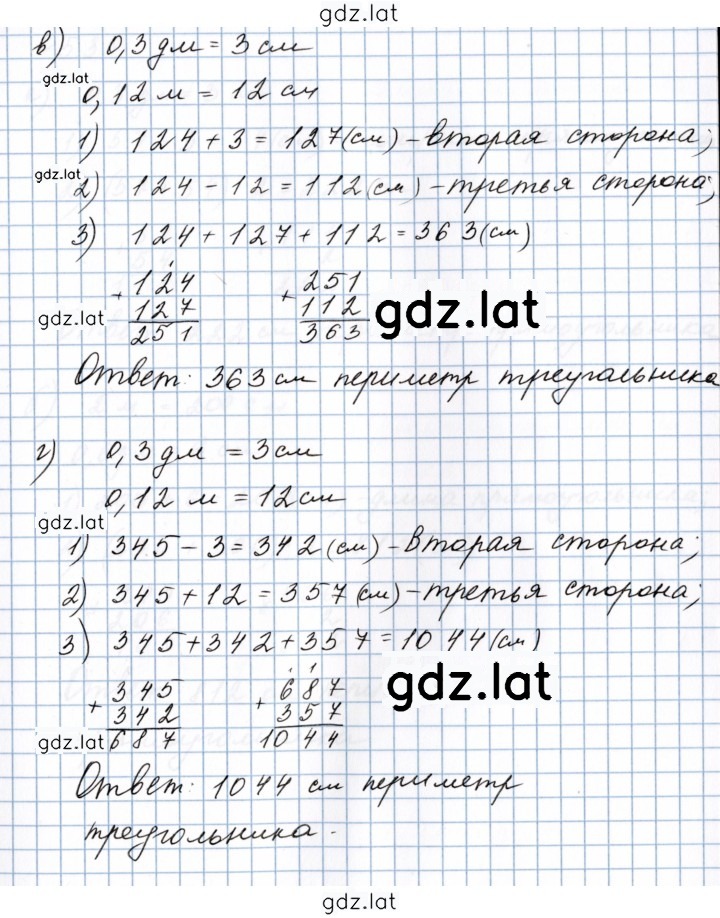 gdz.lat
в) 0,3 дм = 3 см
gdz.lat
0,12 м = 12 см
1) 124 + 3 = 127 (см) - вторая сторона;
gdz.lat
2) 124 - 12 = 112 (см) - третья сторона;
3) 124 + 127 + 112 = 363 (см)
1
124 251
+ +
127 112
gdz.lat
gdz.lat
251 363
Ответ: 363 см периметр треугольника
г) 0,3 дм = 3 см
0,12 м = 12 см
gdz.lat
1) 345 - 3 = 342 (см) - вторая сторона;
2) 345 + 12 = 357 (см) - третья сторона;
3) 345 + 342 + 357 = 1044 (см)
345 687
+ +
342 357
gdz.lat
gdz.lat
687 1044
Ответ: 1044 см периметр
треугольника.
gdz.lat